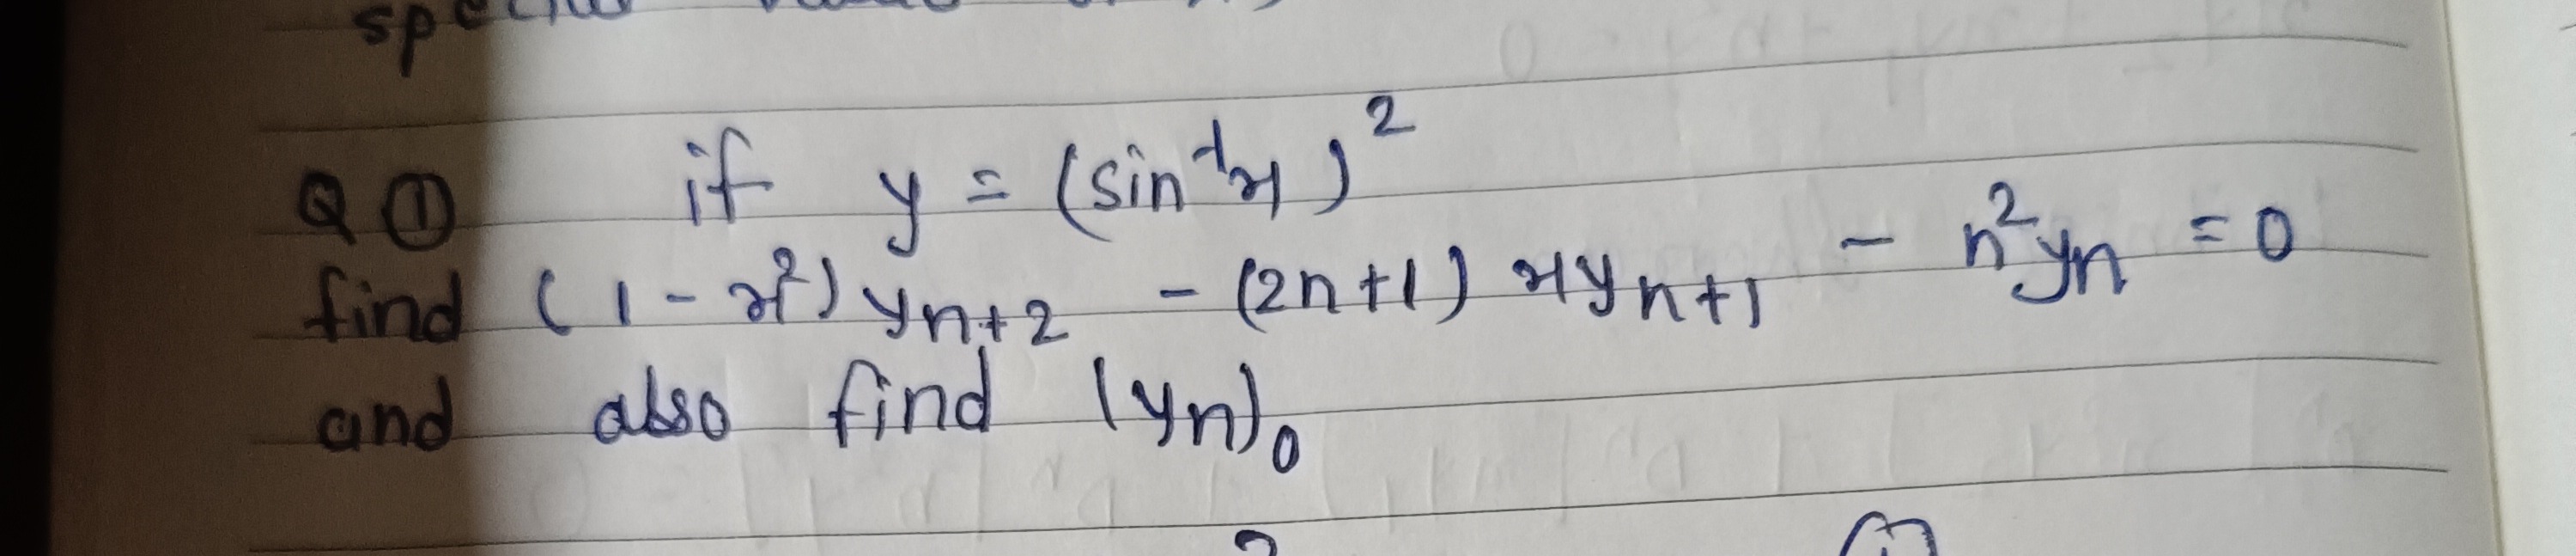 Q ① if y = (sin⁻¹x)²
find (1-x²) yn+2 - (2n+1) xyn+1 - n²yn = 0
and also find (yn)₀